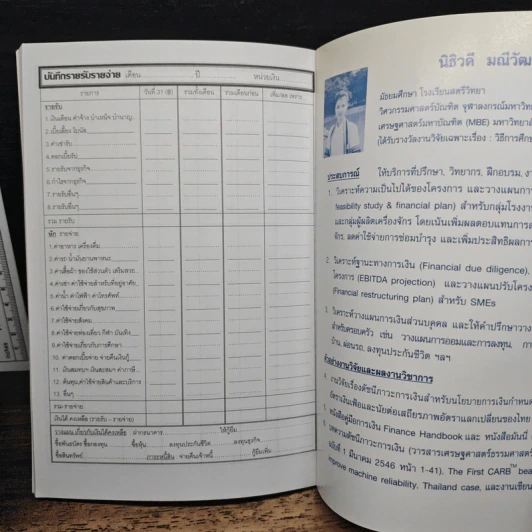 บันทึกรายรับรายจ่าย เดือน ปี หน่วยเงิน
รายการ วันที่ 31 รวมทั้งเดือน รวมเดือนก่อน เพิ่ม/ลด
รายรับ
1.เงินเดือน ค่าจ้าง บำเหน็จ บำนาญ
2.เบี้ยเลี้ยง โบนัส
3.ค่าเช่ารับ
4.ดอกเบี้ยรับ
5.รายรับจากธุรกิจ
6.กำไรจากธุรกิจ
7.รายรับอื่นๆ
8.รายรับอื่นๆ
รวม รายรับ
หัก รายจ่าย
1.ค่าอาหาร เครื่องดื่ม
2.ค่ารถ น้ำมันยานพาหนะ
3.ค่าเสื้อผ้า ของใช้ส่วนตัว เสริมสวย
4.ค่าเช่า ค่าใช้จ่ายสำหรับที่อยู่อาศัย
5.ค่าน้ำ ค่าไฟฟ้า ค่าโทรศัพท์
6.ค่าใช้จ่ายเกี่ยวกับสุขภาพ
7.ค่าใช้จ่ายสังคม
8.ค่าใช้จ่ายท่องเที่ยว กีฬา บันเทิง
9.ค่าใช้จ่ายเกี่ยวกับการศึกษา
10. ค่าดอกเบี้ยจ่าย จ่ายคืนเงินกู้
11. เงินสมทบฯ เงินสะสมฯ ค่าภาษี
12. ต้นทุน,ค่าใช้จ่ายสินค้าและบริการ
13. อื่นๆ
รวม รายจ่าย
เงินได้ คงเหลือ (รายรับ - รายจ่าย)
วางแผน เกี่ยวกับเงินได้คงเหลือ ฝากธนาคาร ให้กู้ยืม
ซื้อพันธบัตร ซื้อกองทุน ซื้อหุ้น ลงทุนประกันชีวิต ลงทุนธุรกิจ
ซื้อสินทรัพย์ ภาระหนี้สิน จ่ายคืนเจ้าหนี้ กู้ยืมเพิ่ม
นิธิวดี มณีวัฒ
มัธยมศึกษา โรงเรียนสตรีวิทยา
วิศวกรรมศาสตร์บัณฑิต จุฬาลงกรณ์มหาวิทยา
เศรษฐศาสตร์มหาบัณฑิต (MBE) มหาวิทยาลั
(ได้รับรางวัลงานวิจัยเฉพาะเรื่อง : วิธีการศึก
ประสบการณ์ ให้บริการที่ปรึกษา, วิทยากร, ฝึกอบรม, งาน
1. วิเคราะห์ความเป็นไปได้ของโครงการ และวางแผนการ
feasibility study & financial plan) สำหรับกลุ่มโรงงาน
และกลุ่มผู้ผลิตเครื่องจักร โดยเน้นเพิ่มผลตอบแทนการล
จักร, ลดค่าใช้จ่ายการซ่อมบำรุง และเพิ่มประสิทธิผลการ
2. วิเคราะห์ฐานะทางการเงิน (Financial due diligence),
โครงการ (EBITDA projection) และวางแผนปรับโครง
(Financial restructuring plan) สำหรับ SMEs
3. วิเคราะห์วางแผนการเงินส่วนบุคคล และให้คำปรึกษาวาง
สำหรับครอบครัว เช่น วางแผนการออมและการลงทุน,
บ้าน, ผ่อนรถ, ลงทุนประกันชีวิต ฯลฯ
ตัวอย่างงานวิจัยและผลงานวิชาการ
งานวิจัยเรื่องดัชนีภาวะการเงินสำหรับนโยบายการเงินกำหนด
อัตราเงินเฟ้อและนัยต่อเสถียรภาพอัตราแลกเปลี่ยนของไทย
หนังสือคู่มือการเงิน Finance Handbook และ หนังสือมันนี่
บทความดัชนีภาวะการเงิน (วารสารเศรษฐศาสตร์ธรรมศาสตร์
ฉบับที่ 1 มีนาคม 2546 หน้า 1-41), The First CARB™ bea
improve machine reliability. Thailand case, และงานเขียน